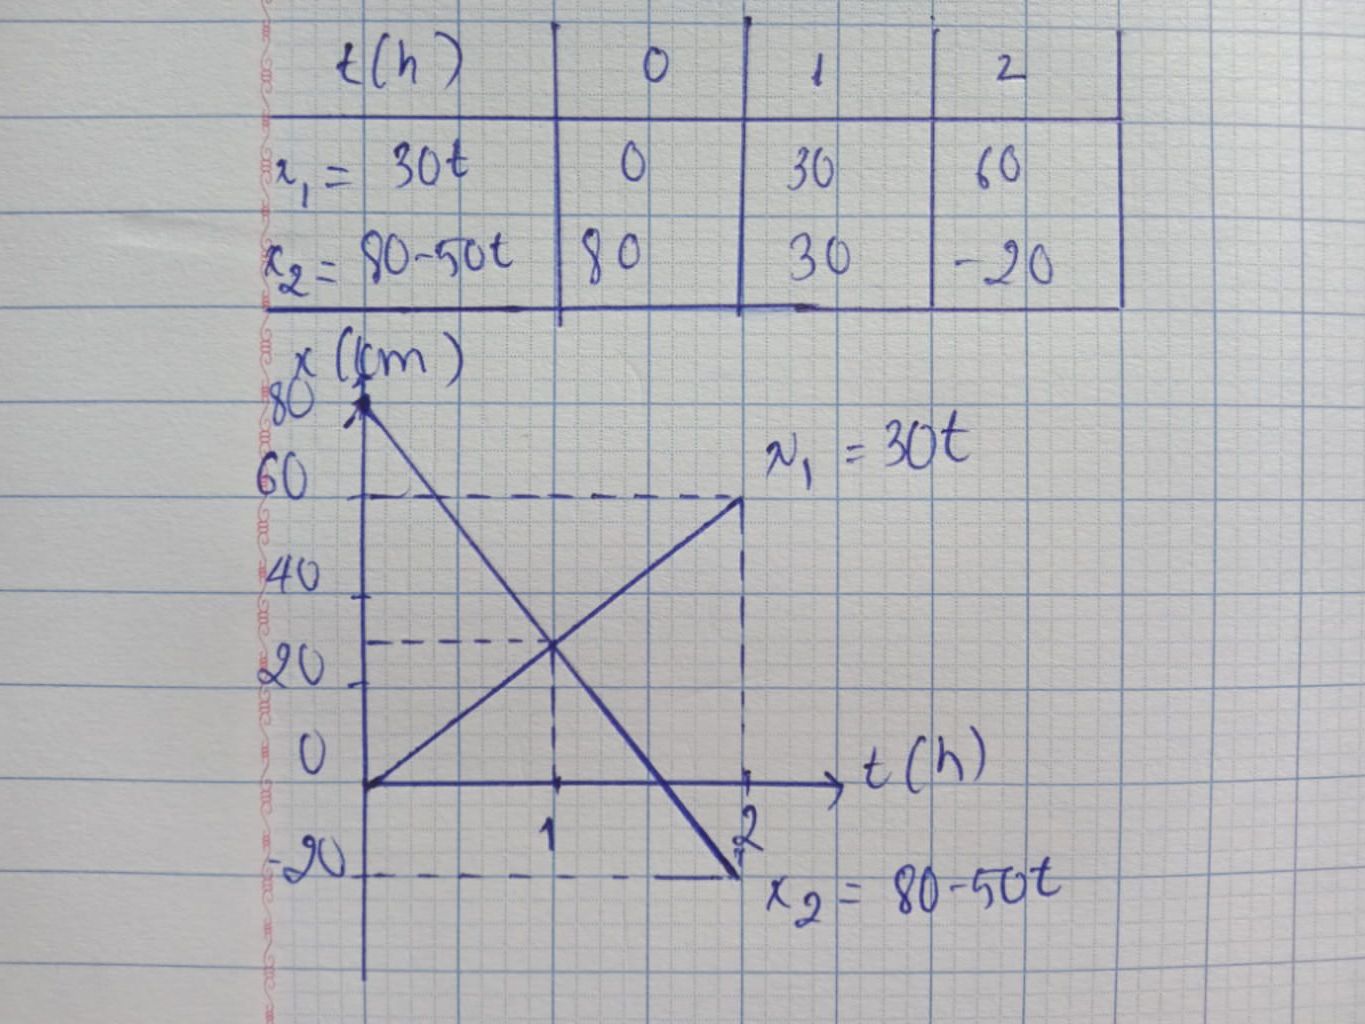 t(h) 0 1 2
x₁ = 30t 0 30 60
x₂ = 80-50t 80 30 -20
x (km)
80
x₁ = 30t
60
40
20
0
t(h)
1 2
-20
x₂ = 80-50t